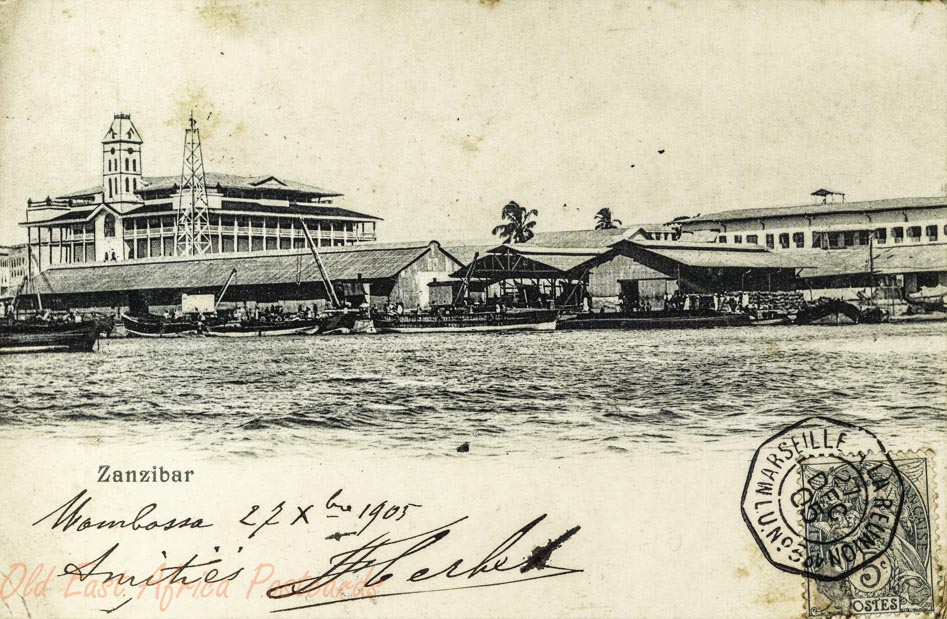 Zanzibar
Mombossa 27 Xbre 1905
Amitiés
Herbet
Old East Africa Postcards
LA REUNION A MARSEILLE
DEC
05
5c
POSTES